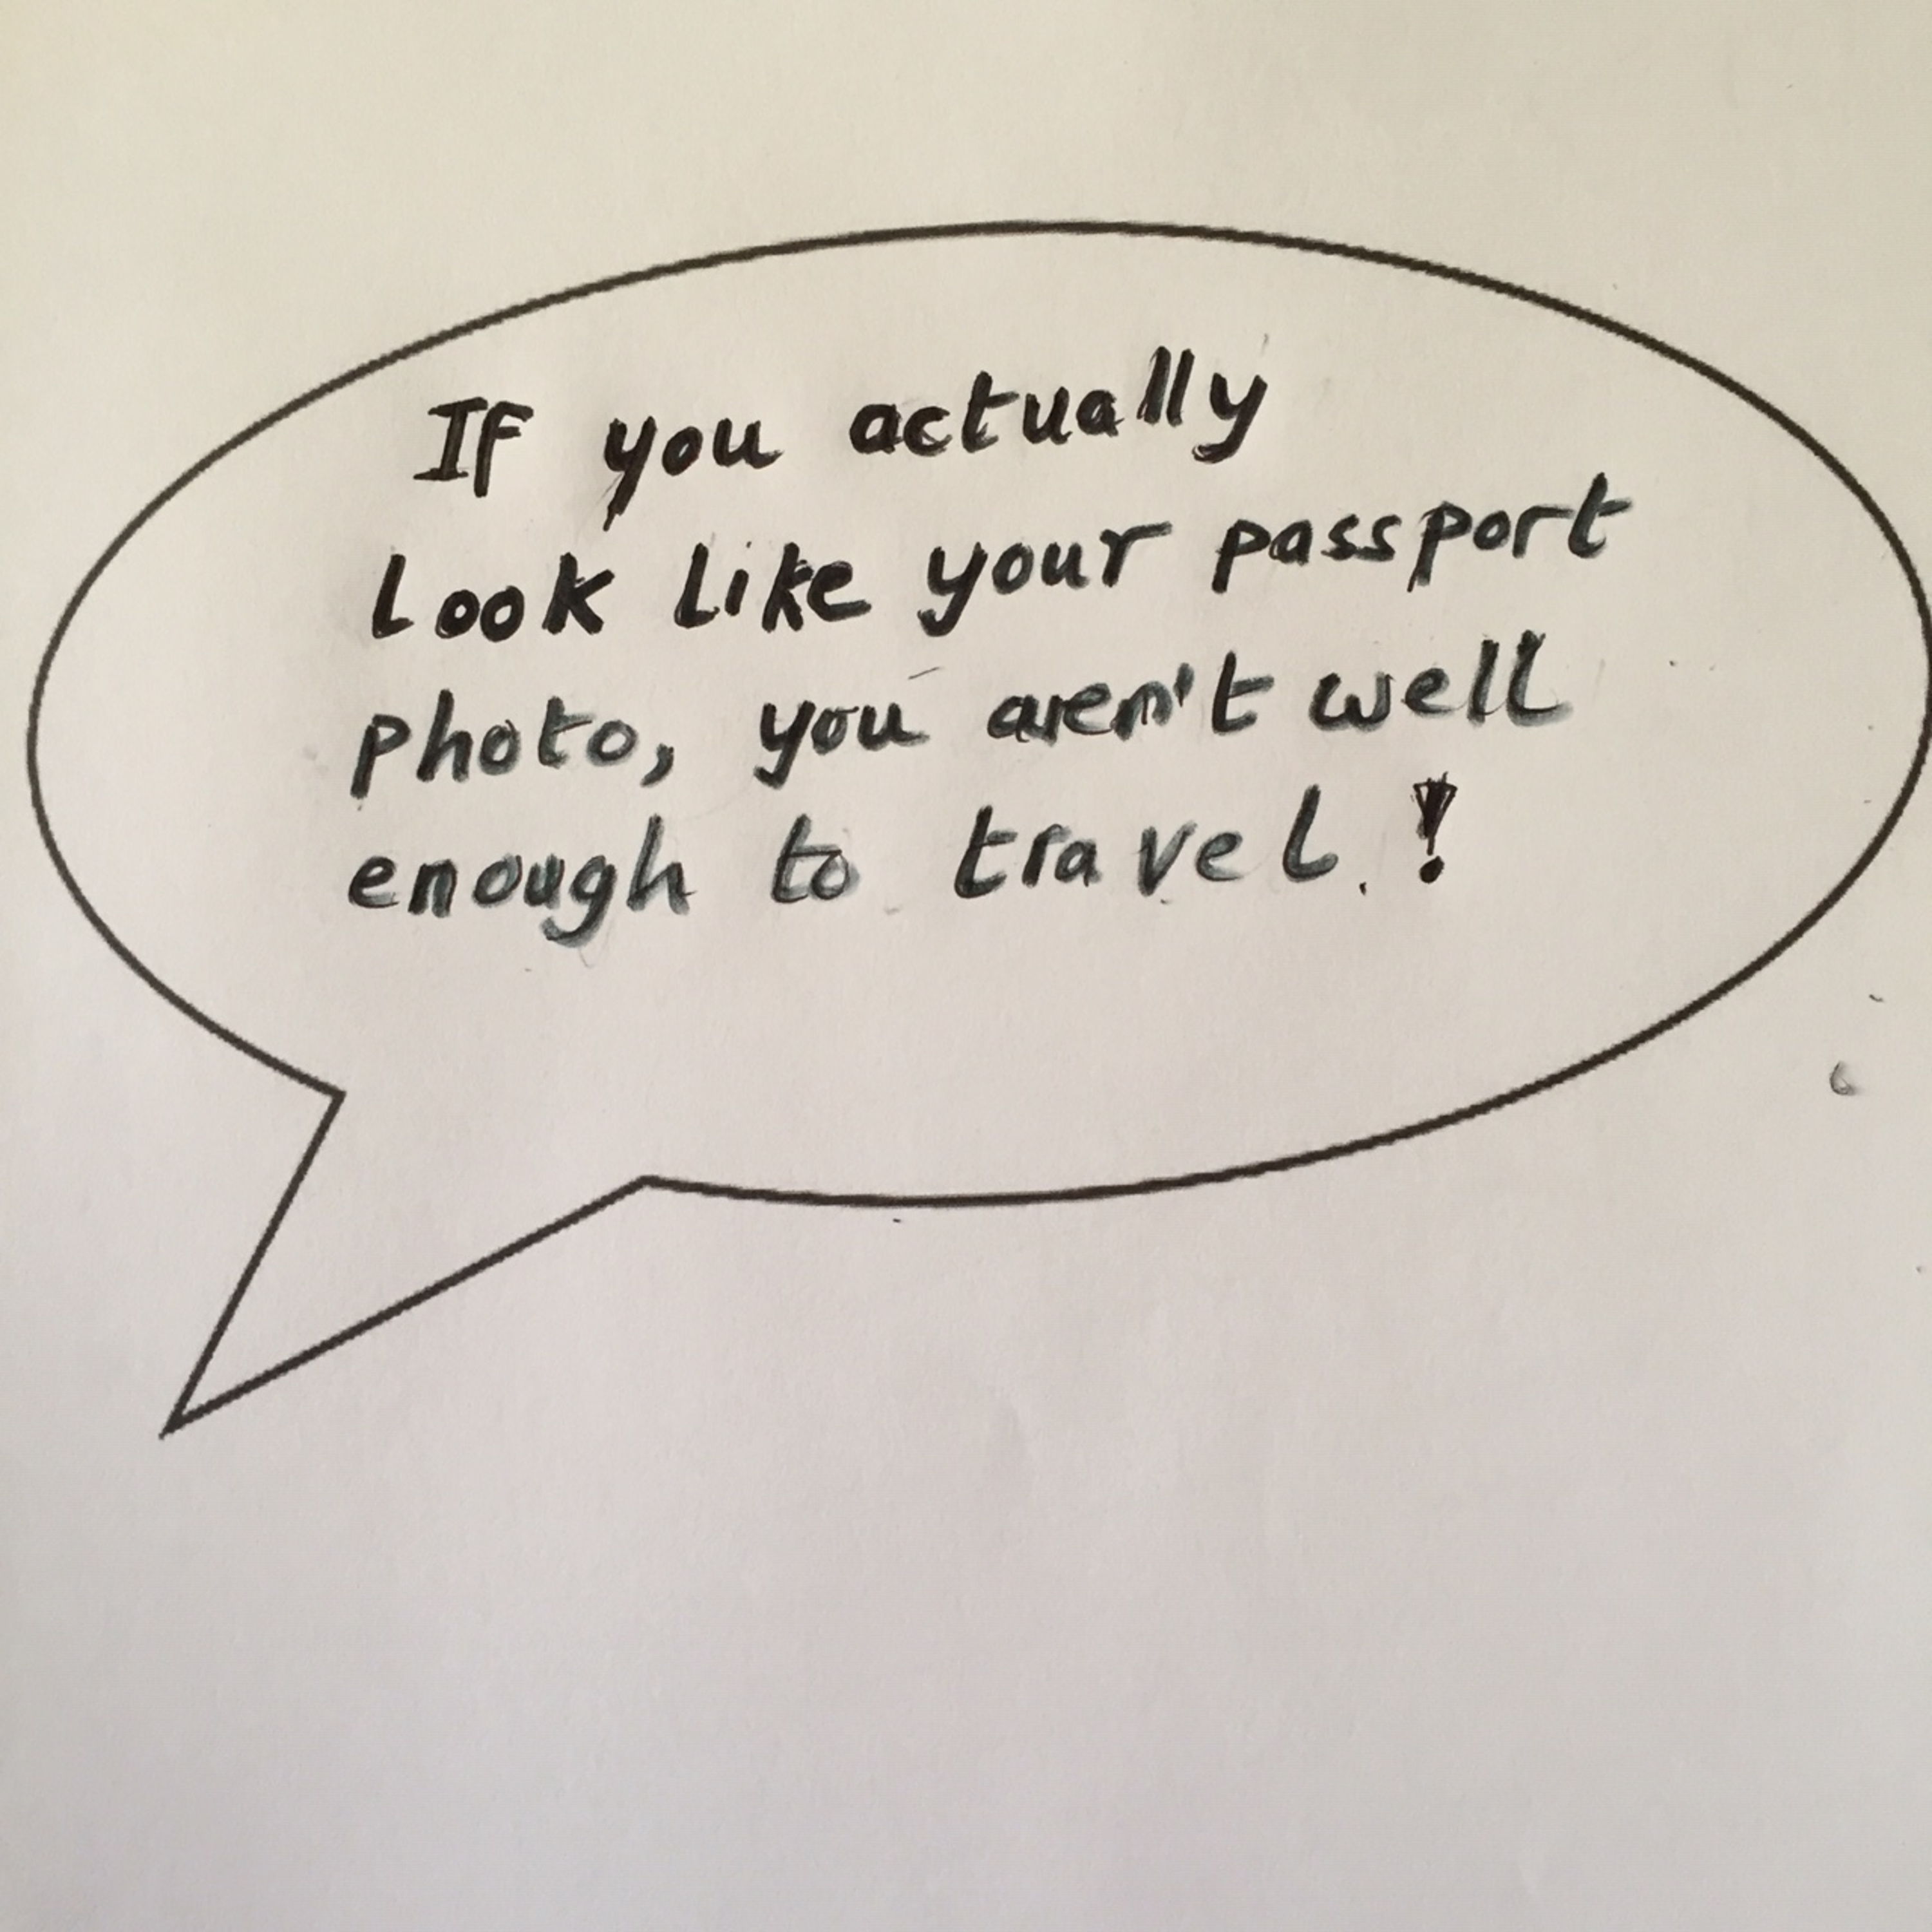 If you actually
look like your passport
photo, you aren't well
enough to travel. !